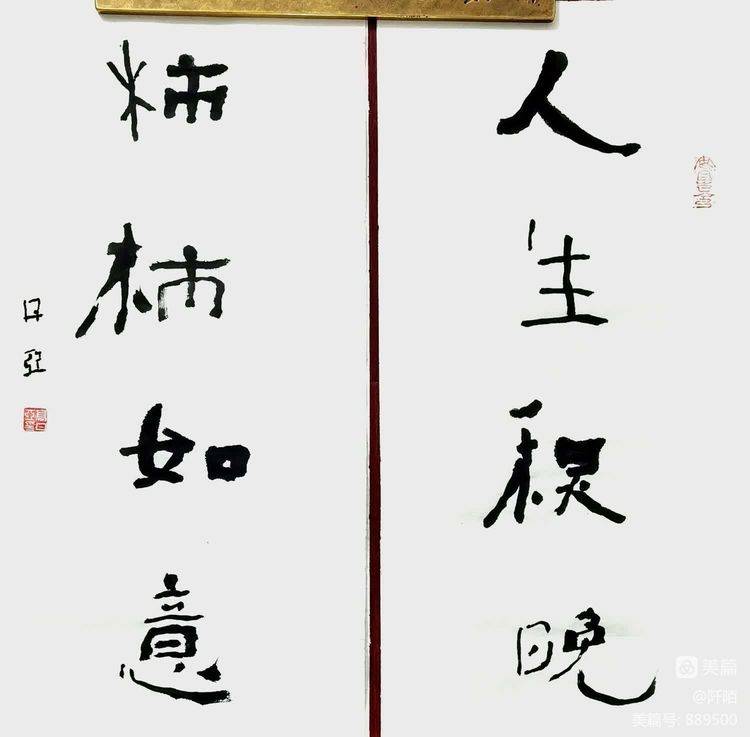 人生晚
柿柿如意
亚
美篇
@阡陌
美篇号: 889500